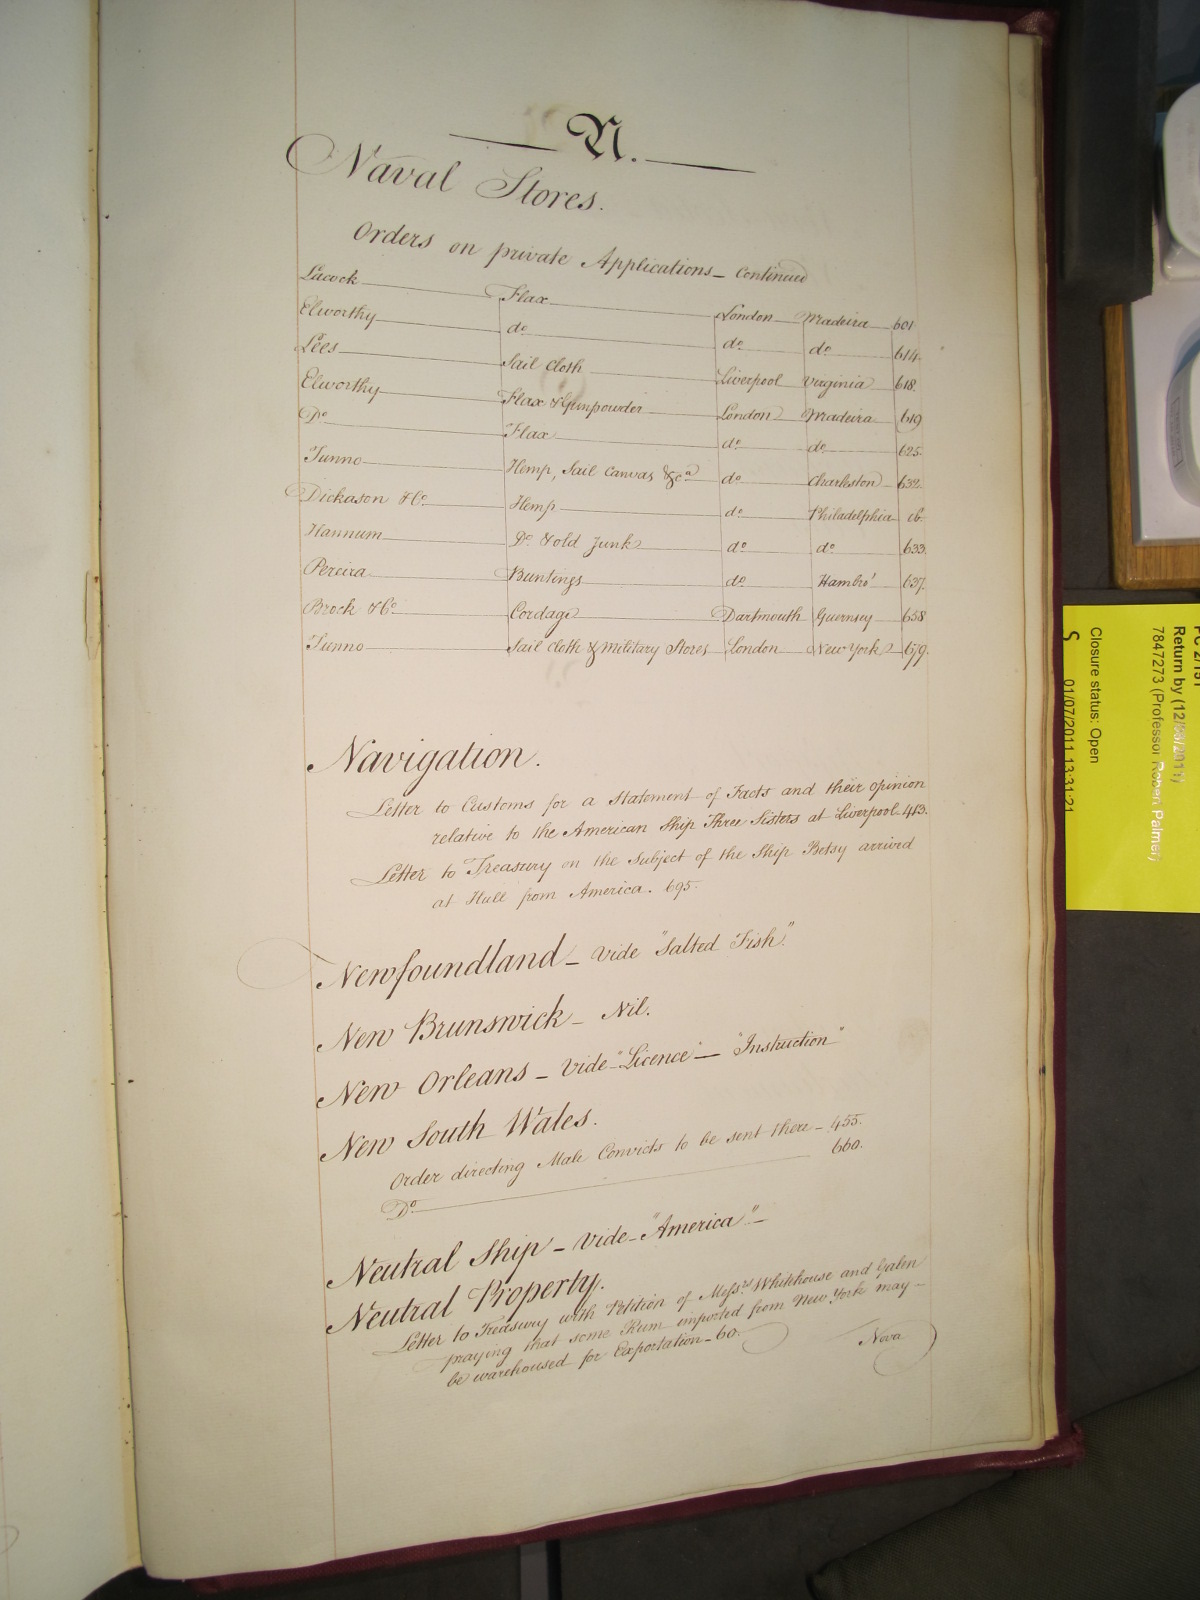 N.
Naval Stores.
Orders on private Applications_ Continued
Lacock Flax London Madeira 601
Elworthy do do do 614.
Lees Sail Cloth Liverpool Virginia 618.
Elworthy Flax & Gunpowder London Madeira 619
Do Flax do do 625.
Tunno Hemp, Sail Canvas &ca do Charleston 632.
Dickason & Co Hemp do Philadelphia ib.
Hannum Do & old Junk do do 633.
Pereira Buntings do Hambro' 637.
Brock & Co Cordage Dartmouth Guernsey 658
Tunno Sail Cloth & Military Stores London New York 679.
Navigation.
Letter to Customs for a Statement of Facts and their opinion
relative to the American Ship Three Sisters at Liverpool. 413.
Letter to Treasury on the Subject of the Ship Betsy arrived
at Hull from America. 695.
Newfoundland_ vide "Salted Fish."
New Brunswick_ Nil.
New Orleans_ vide "Licence"_ "Instruction"
New South Wales.
Order directing Male Convicts to be sent there_ 455.
Do 660.
Neutral Ship_ vide_ "America"_
Neutral Property.
Letter to Treasury with Petition of Messrs Whitehouse and Galen
praying that some Rum imported from New York may_
be warehoused for Exportation_ 60.
Nova
Return by (12/08/2011)
7847273 (Professor Robert Palmer)
Closure status: Open
01/07/2011 13:31:21
S